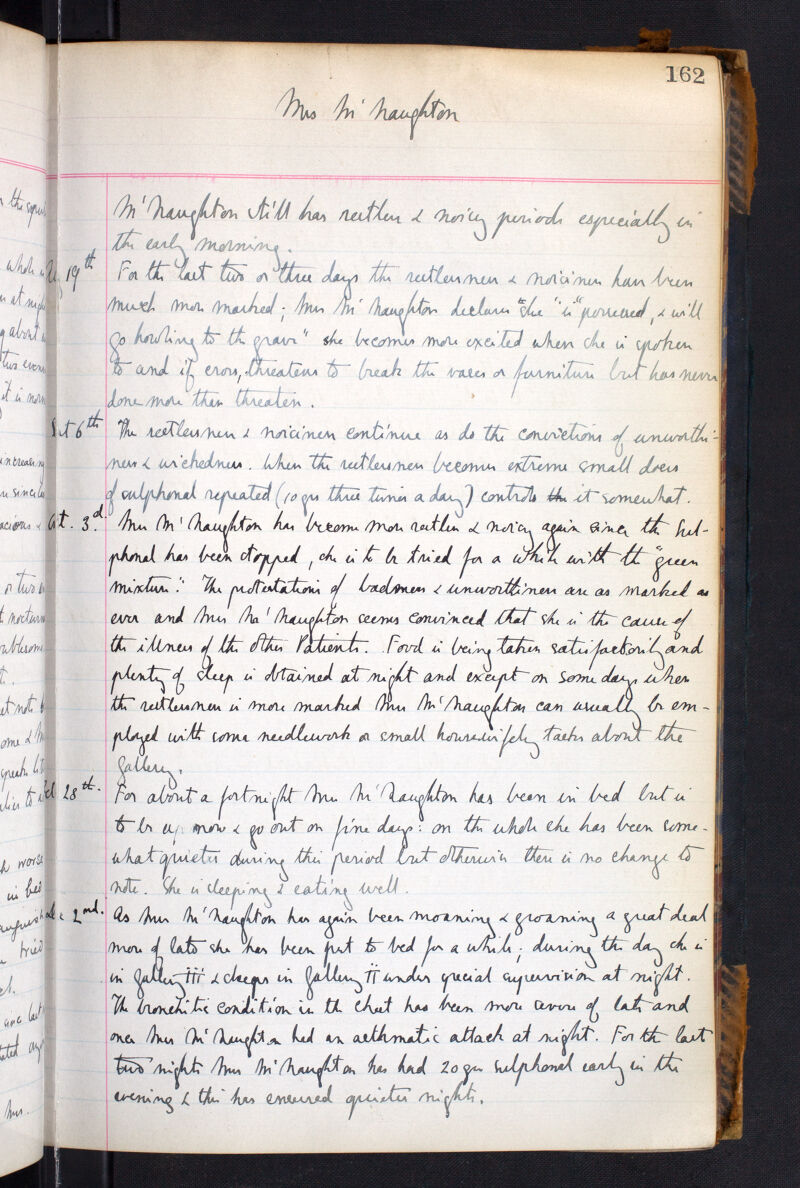 162
Mrs McNaughton
McNaughton still has restless & noisy periods especially in
the early morning.
19th For the last two or three days the restlessness & noisiness have been
much more marked; Mrs McNaughton declares "she "is" poisoned, & will
go howling to the grave" she becomes more excited when she is spoken
to and if cross, threatens to break the vases or furniture but has never
done more than threaten.
6th The restlessness & noisiness continue as do the convictions of unworthi-
ness & wickedness. When the restlessness becomes extreme small doses
of sulphonal repeated (10 grs three times a day) controls the it somewhat.
3d. Mrs McNaughton has become more restless & noisy again since the Sul-
phonal has been stopped, she is to be tried for a while with the "green
mixture." The protestations of badness & unworthiness are as marked as
ever and Mrs McNaughton seems convinced that she is the cause of
the illness of the other Patients. Food is being taken satisfactorily and
plenty of sleep is obtained at night and except on some days when
the restlessness is more marked Mrs McNaughton can usually be em-
ployed with some needlework or small housewifely tasks about the
Gallery.
28th. For about a fortnight Mrs McNaughton has been in bed but is
to be up now & go out on fine days: on the whole she has been some-
what quieter during this period but otherwise there is no change to
note. She is sleeping & eating well.
2nd. As Mrs McNaughton has again been moaning & groaning a great deal
more of late she has been put to bed for a while; during the day she is
in Gallery III & sleeps in Gallery II under special supervision at night.
The bronchitic condition in the chest has been more severe of late and
once Mrs McNaughton had an asthmatic attack at night. For the last
two nights Mrs McNaughton has had 20 grs sulphonal early in the
evening & this has ensured quieter nights.